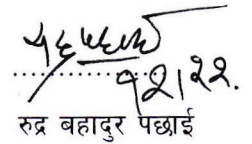 १२।२२.
रुद्र बहादुर पछाई